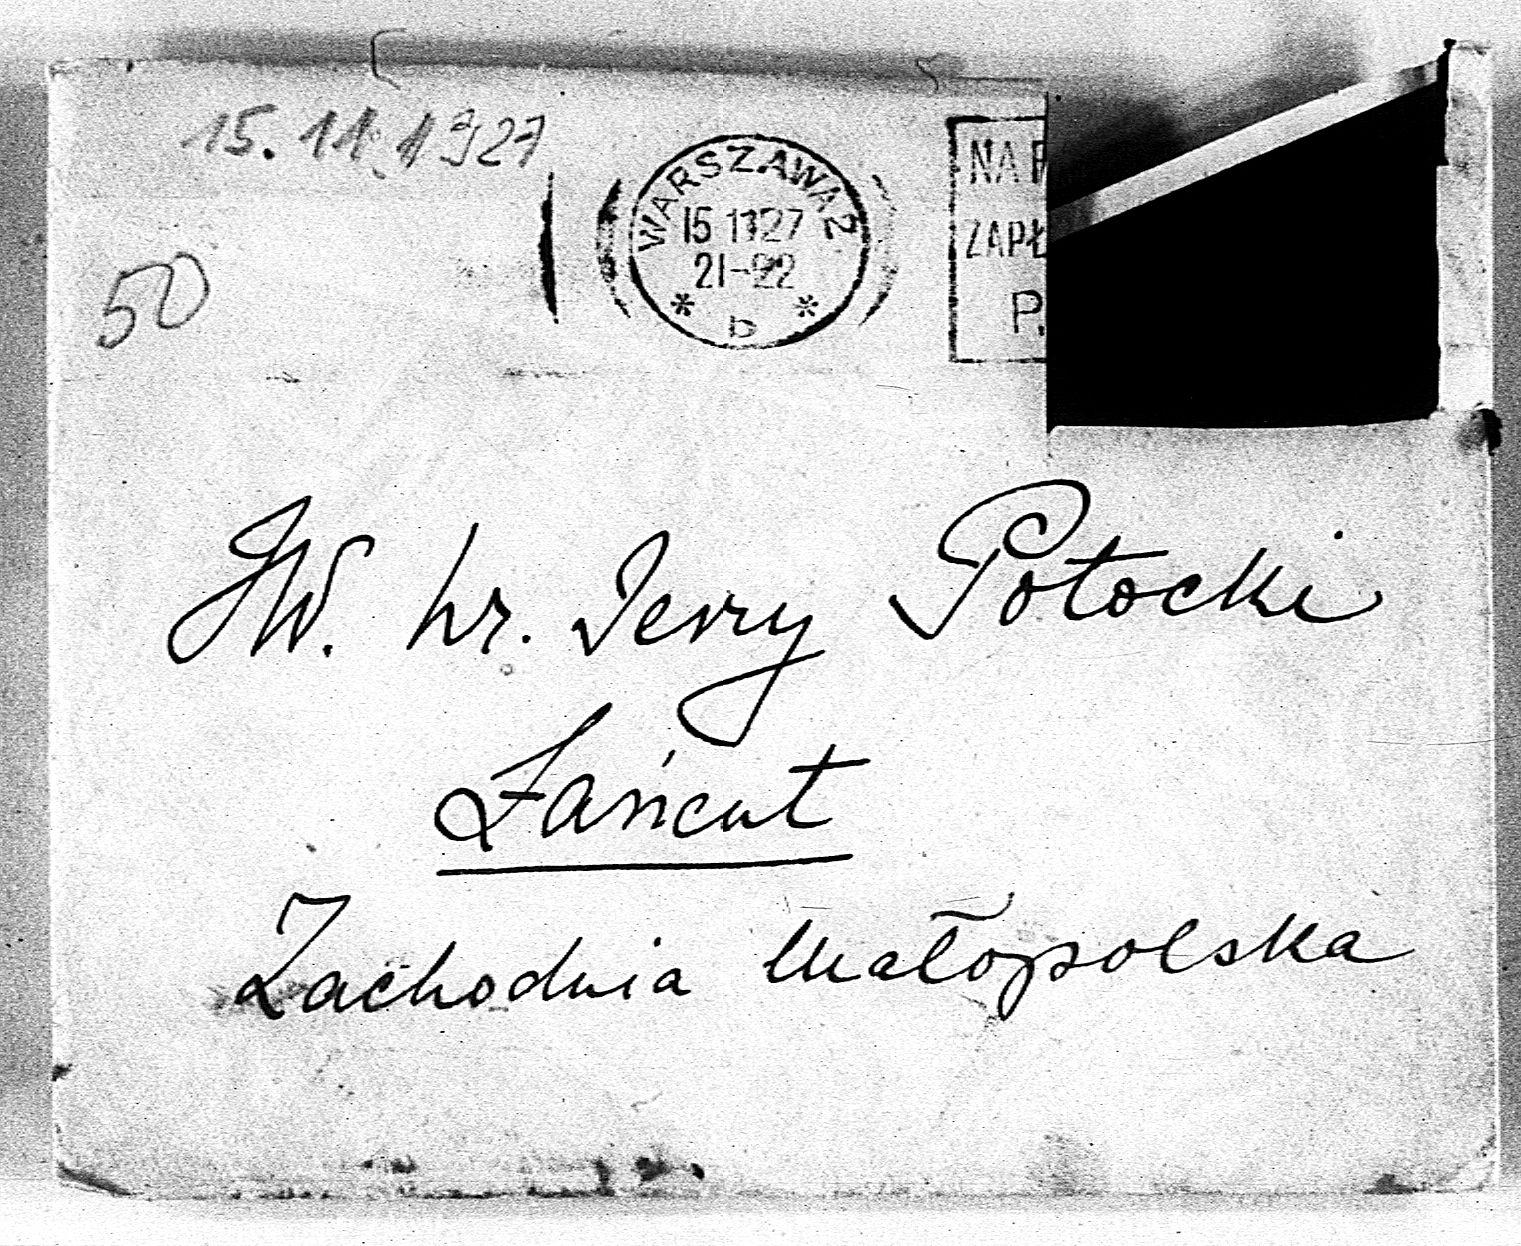 15.11.1927
WARSZAWA 2
15 11 27
21-22
b
NA P
ZAPŁ
P.
50
JW. hr. Jerzy Potocki
Łańcut
Zachodnia Małopolska